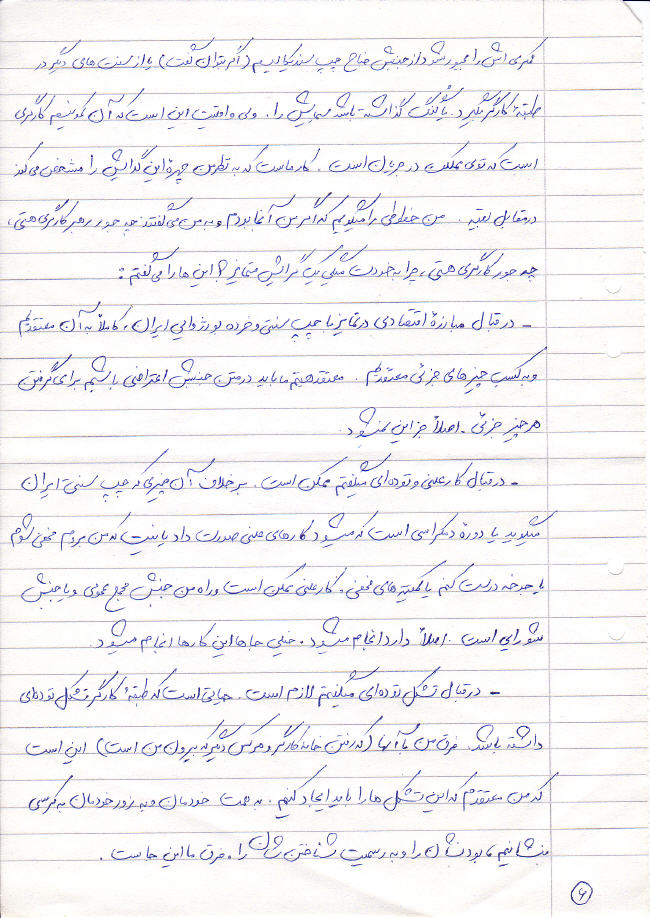 فکری اش را مجبور شود از جنبش جناح چپ سندیکالیسم (اگر بتوان گفت) یا از سنت های دیگر در
طبقهٔ کارگر بگیرد. یا گذاشته باشد را. ولی واقعیت این است که آن کمونیسم کارگری
است که توی مملکت در جریان است. کار ماست که به نظر من چهرهٔ این گرایش را مشخص می‌کند
در مقابل بقیه. من خطوطی را میگویم که اگر من آنجا بودم و به من می‌گفتند چه جور رهبر کارگری هستی،
چه جور کارگری هستی، چرا به خودت میگی یک گرایش متمایز؟ این ها را می‌گفتم:
- در قبال مبارزهٔ اقتصادی در تمایز با چپ سنتی و خرده بورژوایی ایران، کاملاً به آن معتقدم
و به کسب چیزهای جزئی معتقدم. معتقد هستم ما باید در متن جنبش اعتراضی باشیم برای گرفتن
هر چیز جزئی. اصلاً جز این نمیشود.
- در قبال کار علنی و توده‌ای میگفتم ممکن است. برخلاف آن چیزی که چپ سنتی ایران
میگوید یا دورهٔ دمکراسی است که میشود کارهای علنی صورت داد یا نیست که من بروم مخفی شوم
یا جوخه درست کنم یا کمیته های مخفی. کار علنی ممکن است و راه من جنبش مجمع عمومی و یا جنبش
شورایی است. اصلاً دارد انجام میشود. خیلی جاها این کارها انجام میشود.
- در قبال تشکل توده‌ای میگفتم لازم است. حیاتی است که طبقهٔ کارگر تشکل توده‌ای
داشته باشد. فرق من با آنها (که رفتن خانه کارگر و هر کس دیگر که بیرون من است) این است
که من معتقدم که این تشکل ها را باید ایجاد کنیم. به همت خودمان و به زور خودمان به کرسی
بنشانیم بودنشان را و به رسمیت شناختن شان را. فرق ما این جاست.
۶